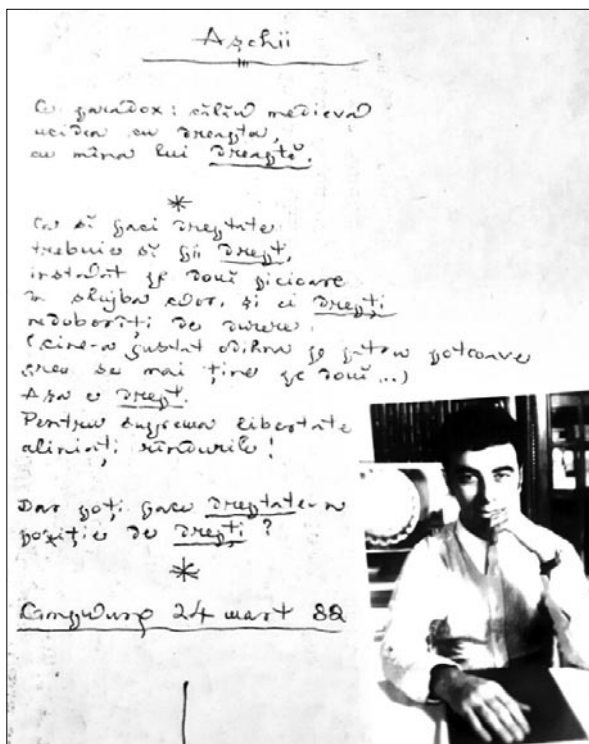 Așchii
Ce paradox: călău medieval
ucidea cu dreapta,
cu mîna lui dreaptă.
*
Ca să faci dreptate
trebuie să fii drept,
instalat pe două picioare
în slujba celor, și ei drepți
nedoborîți de durere.
(cine-a gustat odihna pe patru potcoave
greu se mai ține pe două...)
Așa e drept.
Pentru suprema libertate
aliniați rîndurile!
Dar poți face dreptate în
poziție de drepți?
*
24 mart 82